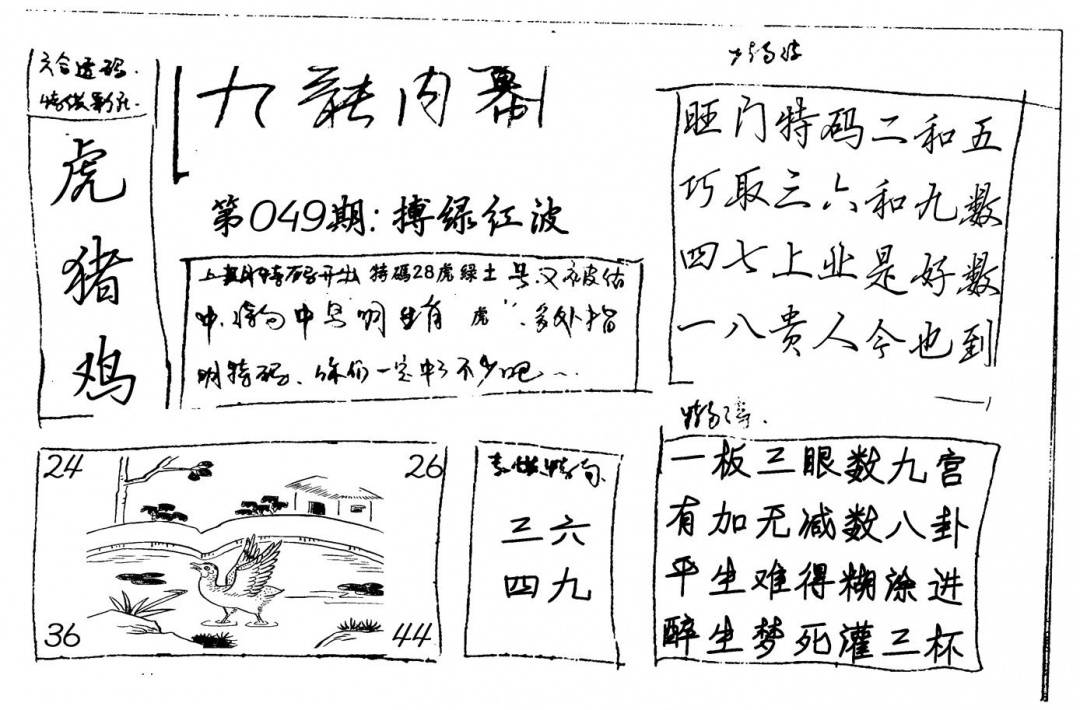 六合透码
虎
猪
鸡
九龍内幕
第049期:搏绿红波
上期特码开出 特碼28虎绿土 号又被估
中 中号明 生肖 虎 多处指
明特码 你们一定中了不少吧
旺门特码二和五
巧取三六和九数
四七上业是好数
一八贵人今也到
24
26
36
44
三六
四九
一板三眼数九宫
有加无减数八卦
平生难得糊涂进
醉生梦死灌三杯